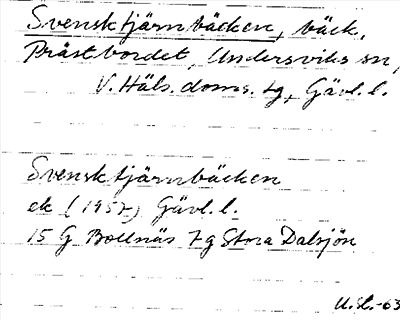 Svensktjärnbäcken, bäck,
Prästbordet, Undersviks sn,
V. Häls. doms. tg, Gävl. l.
Svensktjärnbäcken
ek (1957) Gävl. l.
15 G Bollnäs 7 g Stora Dalsjön
U.St.-63